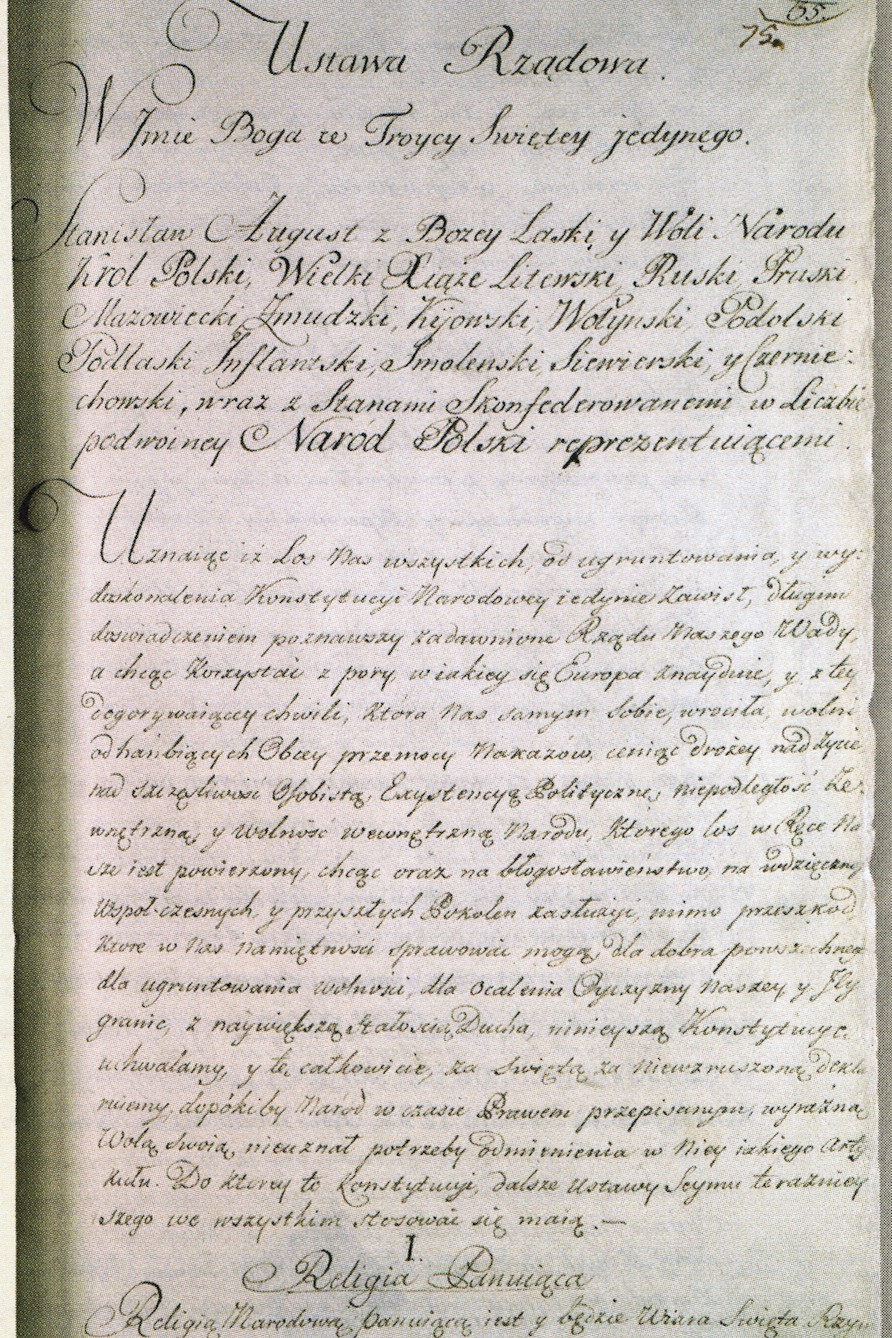 65.
75.
Ustawa Rządowa.
W Jmie Boga w Troycy Swiętey jedynego.
Stanisław August z Bożey Łaski y Woli Narodu
Król Polski, Wielki Xiąże Litewski, Ruski, Pruski,
Mazowiecki, Zmudzki, Kijowski, Wołynski, Podolski
Podlaski Inflantski, Smolenski, Siewierski, y Czernie:
chowski, wraz z Stanami Skonfederowanemi w Liczbie
podwoiney Naród Polski reprezentuiącemi.
Uznaiąc iż Los Nas wszystkich, od ugruntowania, y wy:
doskonalenia Konstytucyi Narodowey iedynie Zawisł, długim
doswiadczeniem poznawszy zadawnione Rządu Naszego Wady,
a chcąc Korzystać z pory, w iakiey się Europa znayduie, y z tey
dogorywaiącey chwili, która Nas samym Sobie, wrociła, wolni
od hańbiących Obcey przemocy Nakazów, ceniąc drożey nad Życie
nad szczęsliwość Osobistą, Exystencyą Polityczną, niepodległość Ze:
wnętrzną, y wolność wewnętrzną Narodu, Ktorego los w Ręce Na
sze iest powierzony, chcąc oraz na błogosławieństwo, na wdzięczność
Wspoł-czesnych, y przyszłych Pokolen zasłużyć, mimo przeszkod
Ktore w Nas namiętności sprawować mogą, dla dobra powszechnego
dla ugruntowania wolności, dla Ocalenia Oyczyzny Naszey y Jey
granic, z największą Stałością Ducha, ninieyszą Konstytucyę
uchwalamy, y tę całkowicie, za Swiętą za niewzruszoną dekla
ruiemy, dopókiby Naród w czasie Prawem przepisanym, wyraźną
Wolą Swoią, nieuznał potrzeby odmienienia w Niey iakiego Arty
kułu. Do Ktorey to Konstytucyi, dalsze Ustawy Seymu teraźniey
szego we wszystkim stosować się maią.—
I.
Religia Panuiąca
Religią Narodową panuiącą iest y będzie Wiara Swięta Rzym